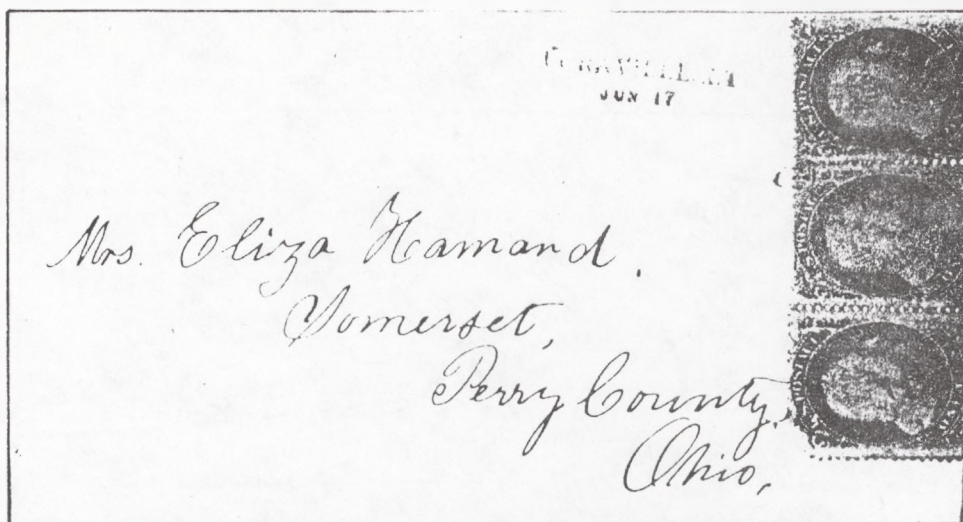 JUN 17
Mrs. Eliza Hamand.
Somerset,
Perry County,
Ohio,